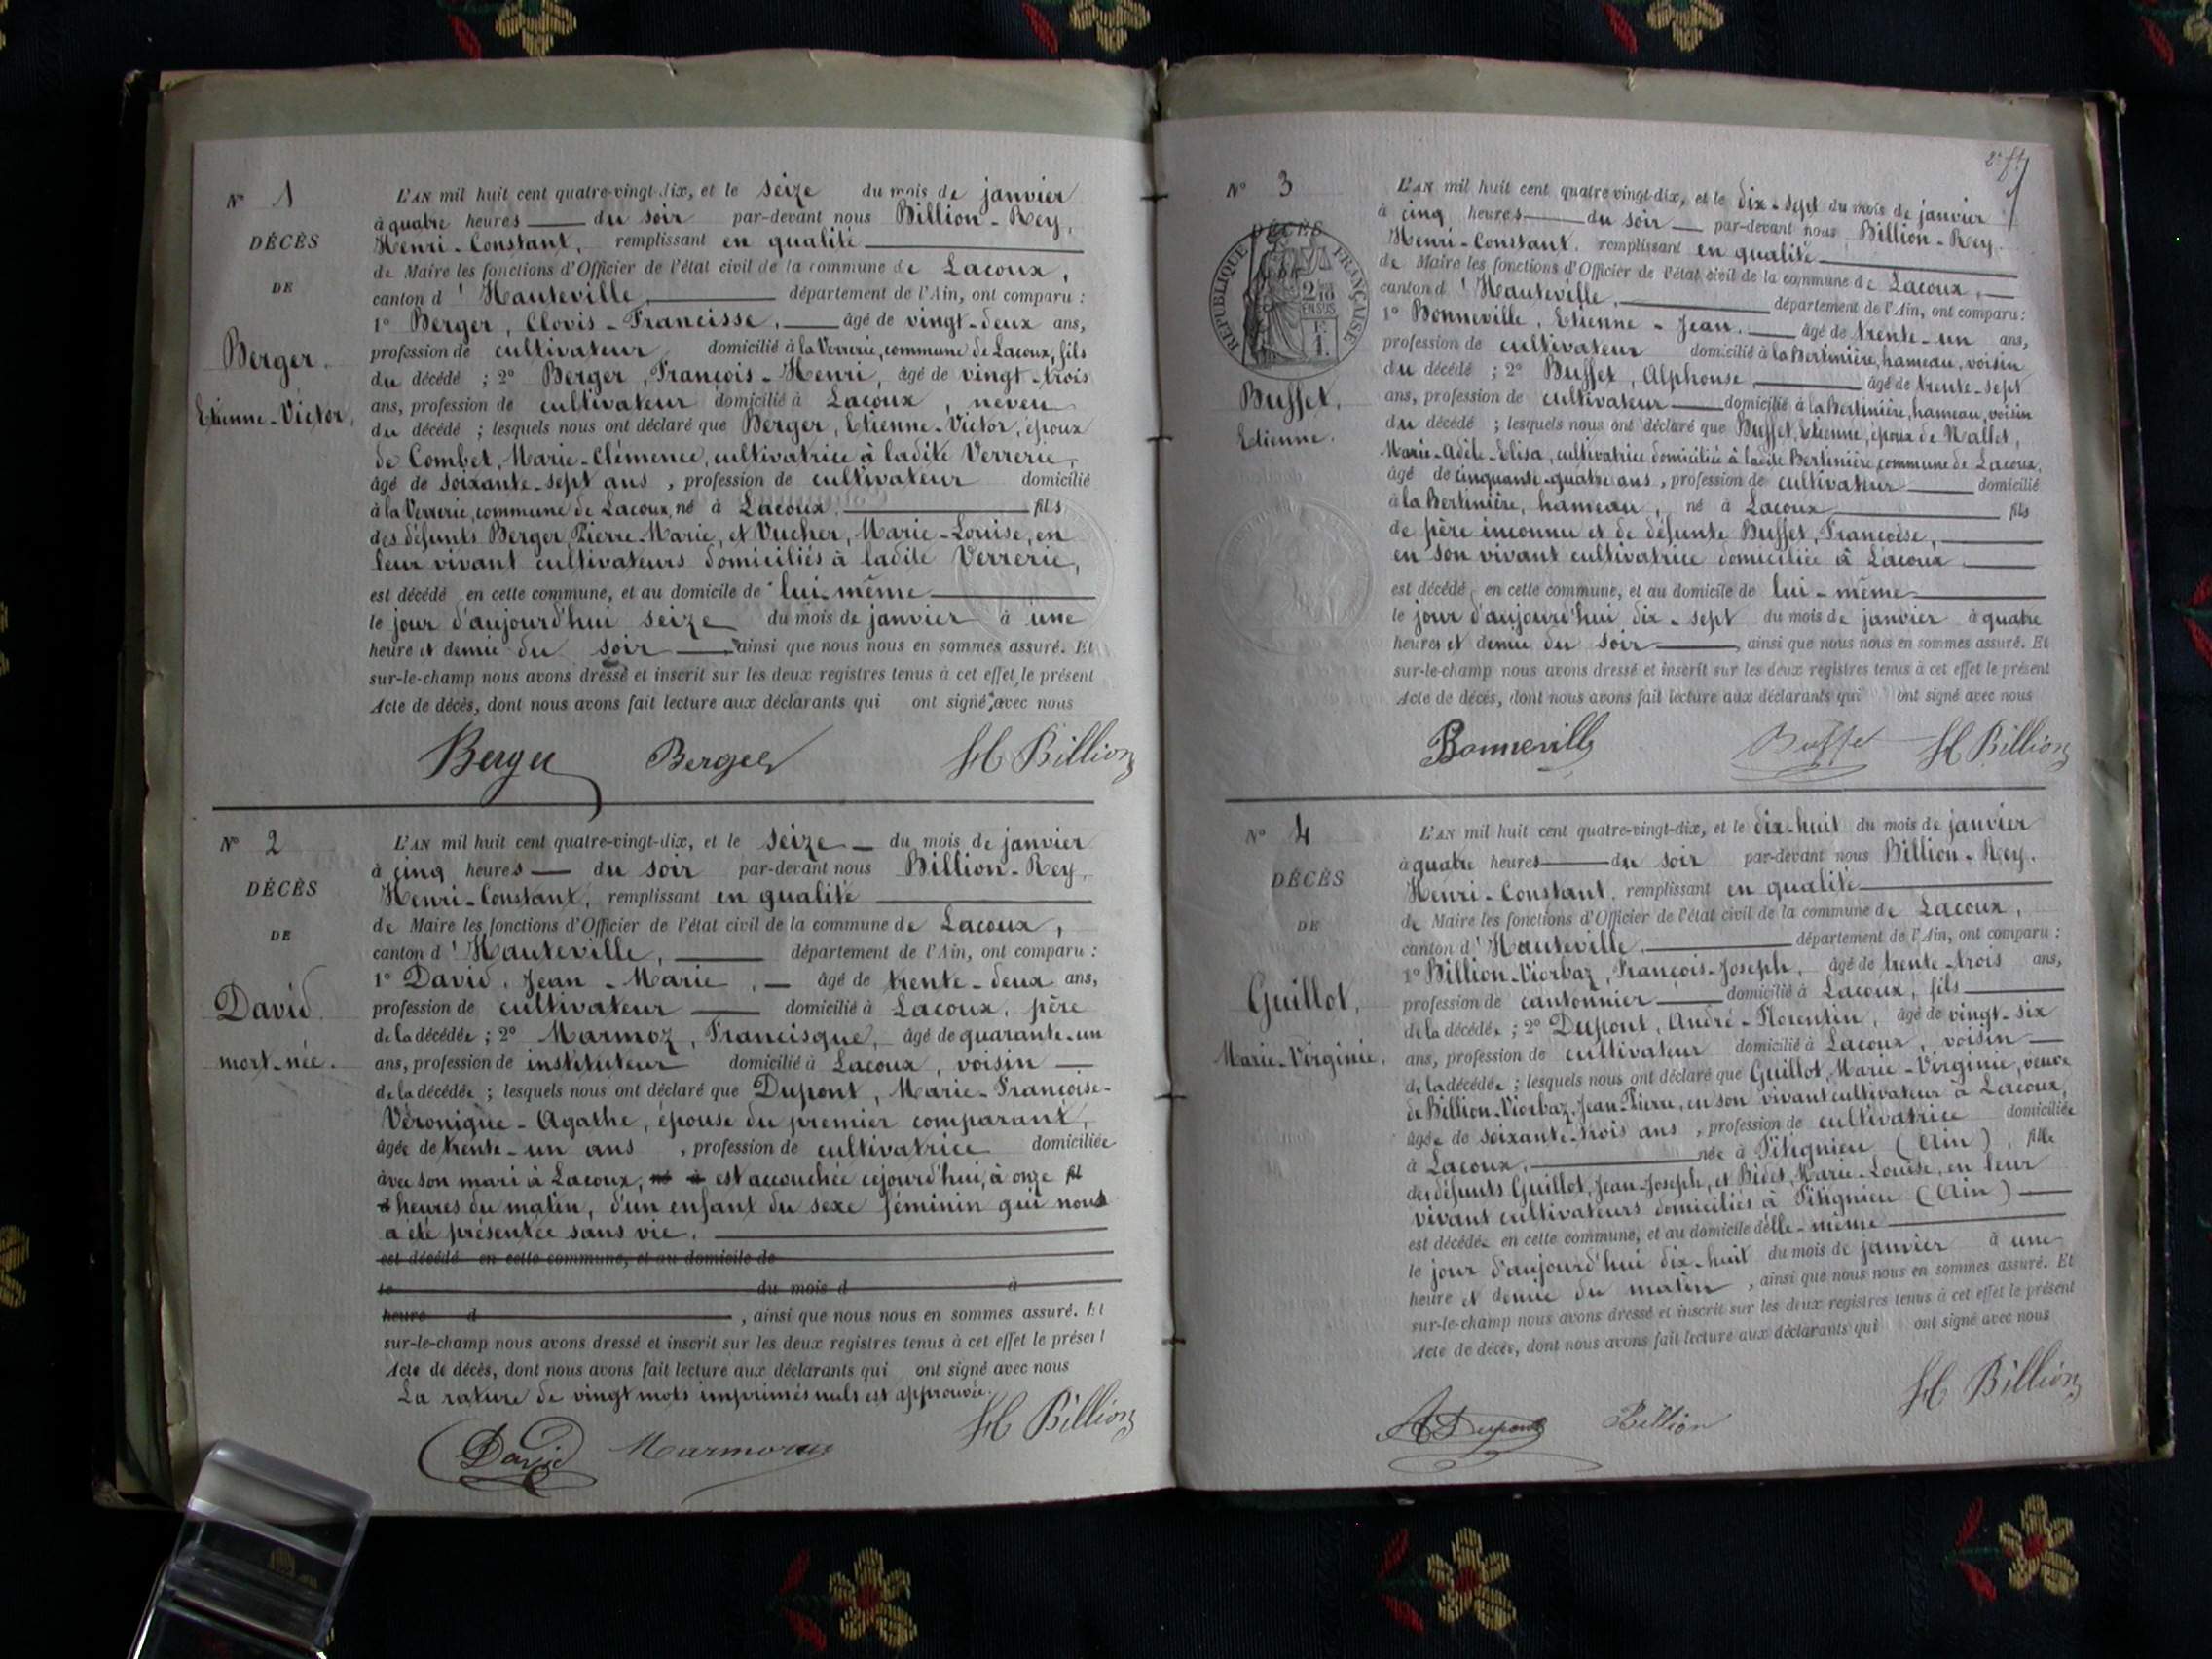 N° 1
DÉCÈS
DE
Berger.
Etienne-Victor,
L'AN mil huit cent quatre-vingt-dix, et le seize du mois de janvier
à quatre heures du soir par-devant nous Billion-Rey,
Henri-Constant, remplissant en qualité
de Maire les fonctions d'Officier de l'état civil de la commune de Lacoux,
canton d'Hauteville, département de l'Ain, ont comparu :
1° Berger, Clovis-Francisse, âgé de vingt-deux ans,
profession de cultivateur domicilié à la Verrerie, commune de Lacoux, fils
du décédé ; 2° Berger, François-Henri, âgé de vingt-trois
ans, profession de cultivateur domicilié à Lacoux, neveu
du décédé ; lesquels nous ont déclaré que Berger, Etienne-Victor, époux
de Combet, Marie-Clémence, cultivatrice à ladite Verrerie,
âgé de soixante-sept ans, profession de cultivateur domicilié
à la Verrerie, commune de Lacoux, né à Lacoux, fils
des défunts Berger, Pierre-Marie, et Vucher, Marie-Louise, en
leur vivant cultivateurs domiciliés à ladite Verrerie,
est décédé en cette commune, et au domicile de lui-même
le jour d'aujourd'hui seize du mois de janvier à une
heure et demie du soir ainsi que nous nous en sommes assuré. Et
sur-le-champ nous avons dressé et inscrit sur les deux registres tenus à cet effet, le présent
Acte de décès, dont nous avons fait lecture aux déclarants qui ont signé avec nous
Berger Berger H Billion
N° 2
DÉCÈS
DE
David.
mort-née.
L'AN mil huit cent quatre-vingt-dix, et le seize du mois de janvier
à cinq heures du soir par-devant nous Billion-Rey,
Henri-Constant, remplissant en qualité
de Maire les fonctions d'Officier de l'état civil de la commune de Lacoux,
canton d'Hauteville, département de l'Ain, ont comparu :
1° David, Jean-Marie, âgé de trente-deux ans,
profession de cultivateur domicilié à Lacoux, père
de la décédée ; 2° Marmoz, Francisque, âgé de quarante-un
ans, profession de instituteur domicilié à Lacoux, voisin
de la décédée ; lesquels nous ont déclaré que Dupont, Marie-Françoise-
Véronique-Agathe, épouse du premier comparant,
âgée de trente-un ans, profession de cultivatrice domiciliée
avec son mari à Lacoux, né à est accouchée cejourd'hui, à onze fil
d heures du matin, d'un enfant du sexe féminin qui nous
a été présentée sans vie.
est décédé en cette commune, et au domicile de
le du mois d à
heure d , ainsi que nous nous en sommes assuré. Et
sur-le-champ nous avons dressé et inscrit sur les deux registres tenus à cet effet le présent
Acte de décès, dont nous avons fait lecture aux déclarants qui ont signé avec nous
La rature de vingt mots imprimés nuls est approuvée.
David H Billion
N° 3
DÉCÈS
RÉPUBLIQUE FRANÇAISE
2/10
EN SUS
Buffet,
Etienne.
L'AN mil huit cent quatre-vingt-dix, et le dix-sept du mois de janvier
à cinq heures du soir par-devant nous Billion-Rey,
Henri-Constant, remplissant en qualité
de Maire les fonctions d'Officier de l'état civil de la commune de Lacoux,
canton d'Hauteville, département de l'Ain, ont comparu :
1° Bonneville, Etienne-Jean, âgé de trente-un ans,
profession de cultivateur domicilié à la Bertinière, hameau, voisin
du décédé ; 2° Buffet, Alphonse, âgé de trente-sept
ans, profession de cultivateur domicilié à la Bertinière, hameau, voisin
du décédé ; lesquels nous ont déclaré que Buffet, Etienne, époux de Mallet,
Marie-Adèle-Elisa, cultivatrice domiciliée à ladite Bertinière, commune de Lacoux,
âgé de cinquante-quatre ans, profession de cultivateur domicilié
à la Bertinière, hameau, né à Lacoux fils
de père inconnu et de défunte Buffet, Françoise,
en son vivant cultivatrice domiciliée à Lacoux
est décédé en cette commune, et au domicile de lui-même
le jour d'aujourd'hui dix-sept du mois de janvier à quatre
heures et demie du soir, ainsi que nous nous en sommes assuré. Et
sur-le-champ nous avons dressé et inscrit sur les deux registres tenus à cet effet le présent
Acte de décès, dont nous avons fait lecture aux déclarants qui ont signé avec nous
Bonneville Buffet H Billion
N° 4
DÉCÈS
DE
Guillot,
Marie-Virginie.
L'AN mil huit cent quatre-vingt-dix, et le dix-huit du mois de janvier
à quatre heures du soir par-devant nous Billion-Rey,
Henri-Constant, remplissant en qualité
de Maire les fonctions d'Officier de l'état civil de la commune de Lacoux,
canton d'Hauteville, département de l'Ain, ont comparu :
1° Billion-Viorbaz, François-Joseph, âgé de trente-trois ans,
profession de cantonnier domicilié à Lacoux, fils
de la décédée ; 2° Dupont, André-Florentin, âgé de vingt-six
ans, profession de cultivateur domicilié à Lacoux, voisin
de la décédée ; lesquels nous ont déclaré que Guillot, Marie-Virginie, veuve
de Billion-Viorbaz, Jean-Pierre, en son vivant cultivateur à Lacoux,
âgée de soixante-trois ans, profession de cultivatrice domiciliée
à Lacoux, née à Pitignieu (Ain), fille
des défunts Guillot, Jean-Joseph, et Bidet, Marie-Louise, en leur
vivant cultivateurs domiciliés à Pitignieu (Ain)
est décédée en cette commune, et au domicile d'elle-même
le jour d'aujourd'hui dix-huit du mois de janvier à une
heure et demie du matin, ainsi que nous nous en sommes assuré. Et
sur-le-champ nous avons dressé et inscrit sur les deux registres tenus à cet effet le présent
Acte de décès, dont nous avons fait lecture aux déclarants qui ont signé avec nous
A Dupont Billion H Billion